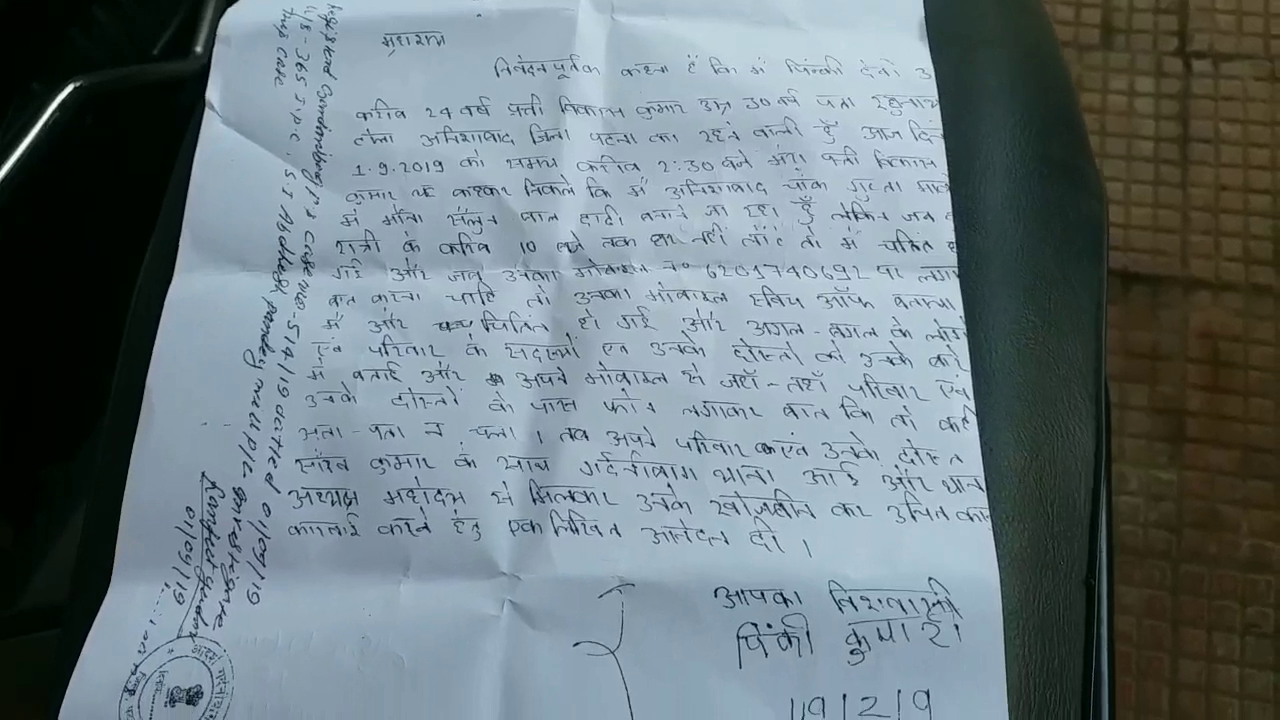 महाशय
निवेदन पूर्वक कहना है कि मैं पिंकी देवी उ
करिब 24 वर्ष पती विकास कुमार उम्र 30 वर्ष पता रघुनाथ
टोला अनिशावाद जिला पटना का रहने वाली हूँ आज दिन
1.9.2019 को समय करिब 2:30 बजे मेरा पती विकास
कुमार कहकर निकले कि मैं अनिशावाद चौक गुप्ता मार्के
में मोना सैलुन बाल दाढ़ी बनाने जा रहा हूँ लेकिन जब व
रात्री के करिब 10 बजे तक घर नहीं लौटे तो मैं चकित ह
गई और जब उनका मोबाइल न० 6201740692 पर लगा
बात करना चाहि तो उनका मोबाइल स्विच ऑफ बताया
मैं और चिंतित हो गई और अगल-बगल के लोगो
एवं परिवार के सदस्यों एवं उनके दोस्तो को उनके बारे
में बताई और अपने मोबाइल से जहाँ-तहाँ परिवार एवं
उनके दोस्तों के पास फोन लगाकर बात कि तो कही
अता-पता न चला । तब अपने परिवार एवं उनके दोस्त
कुमार के साथ गर्दनीबाग थाना आई और थाना
अध्यक्ष महोदय से मिलकर उनके खोजबीन कर उचित का
करने हेतु एक लिखित आवेदन दी ।
आपका विश्वासी
पिंकी कुमारी
1/9/2/9
Registered Gardanibag P.S Case no-514/19 dated 01/09/19
U/S-365 I.P.C, S.I Abdhesh Pandey will up/c investigate
this case
01/09/19